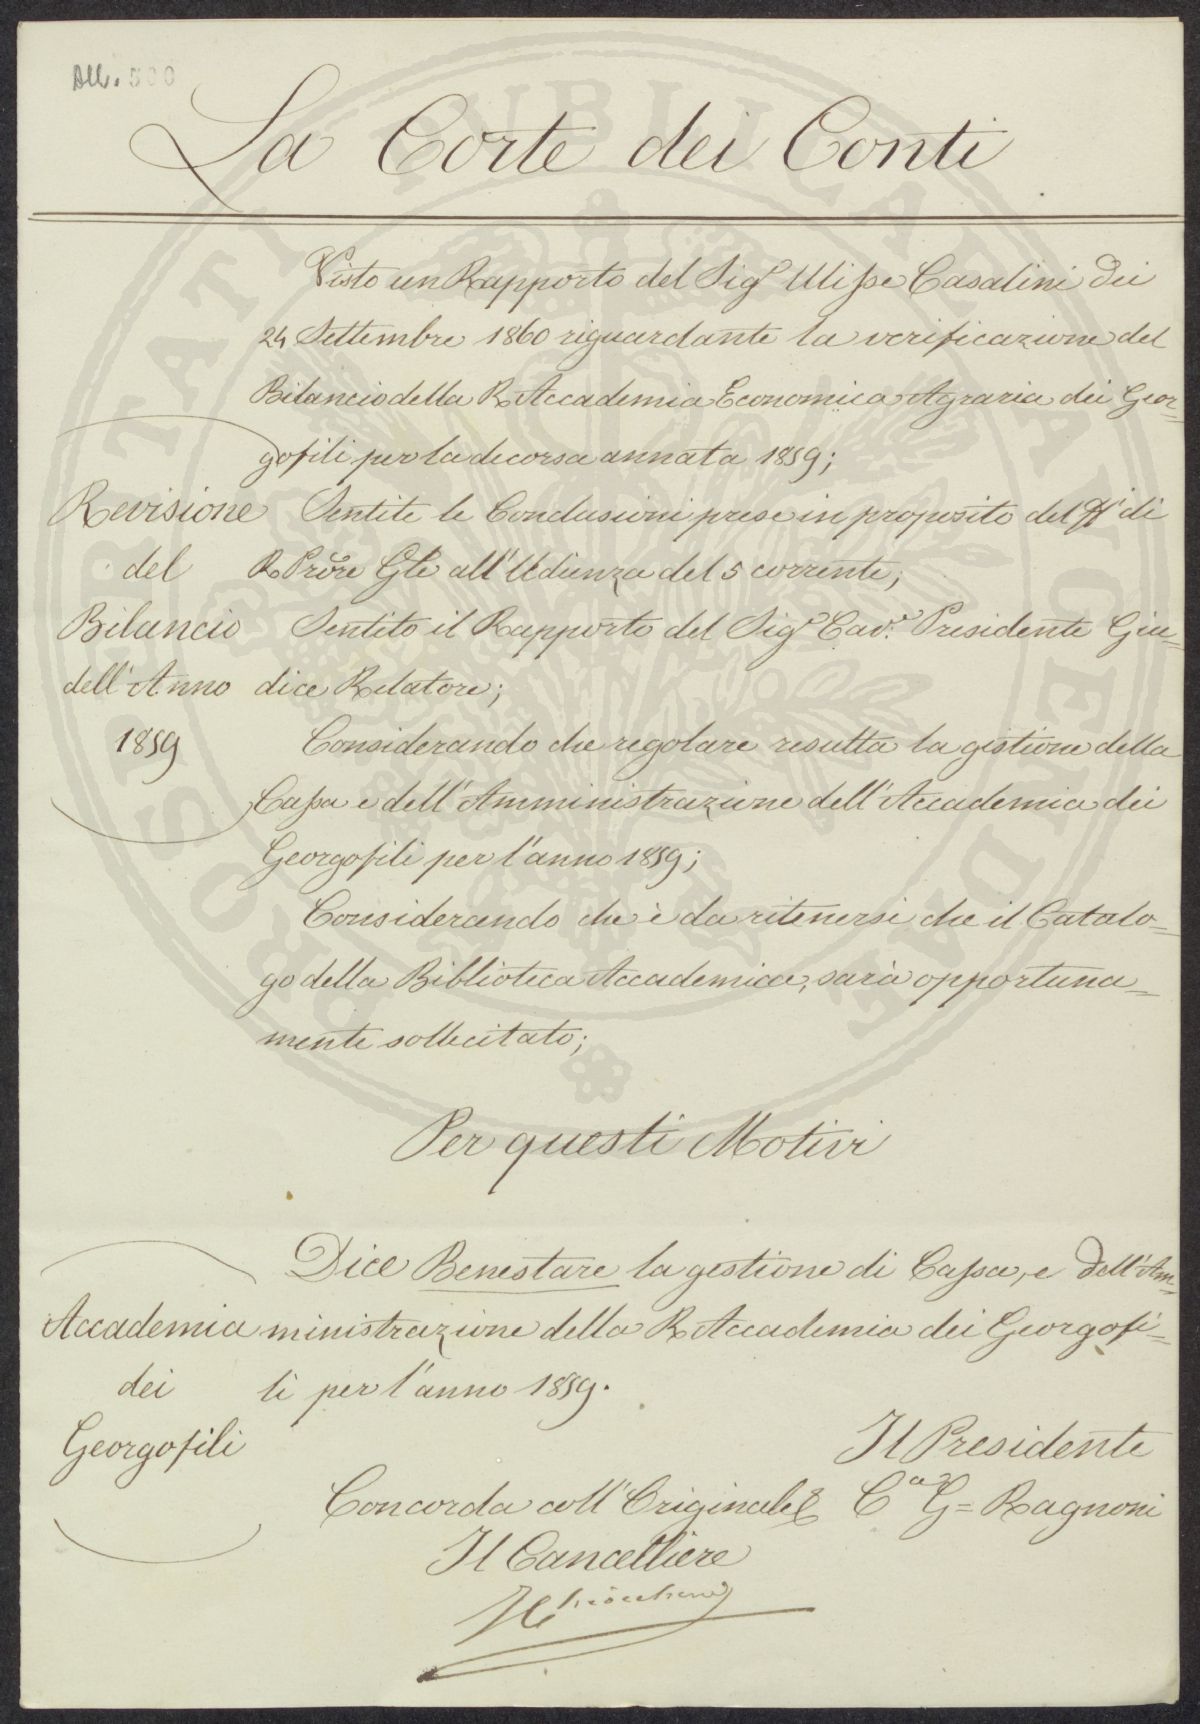 All. 500
La Corte dei Conti
Visto un Rapporto del Sig.r Ulisse Casalini dei
24 Settembre 1860 riguardante la verificazione del
Bilancio della R. Accademia Economica Agraria dei Geor=
gofili per la decorsa annata 1859;
Sentite le Conclusioni prese in proposito del di
R. Prõre Gle all'Udienza del 5 corrente;
Sentito il Rapporto del Sig.r Cav.e Presidente Giu=
dice Relatore;
Considerando che regolare resulta la gestione della
Cassa e dell'Amministrazione dell'Accademia dei
Georgofili per l'anno 1859;
Considerando che è da ritenersi che il Catalo=
go della Biblioteca Accademica, sarà opportuna=
mente sollecitato;
Revisione
del
Bilancio
dell'Anno
1859
Per questi Motivi
Dice Benestare la gestione di Cassa, e dell'Am=
ministrazione della R. Accademia dei Georgofi=
li per l'anno 1859.
Accademia
dei
Georgofili
Il Presidente
C. G= Ragnoni
Concorda coll'Originale
Il Cancelliere
PROSPERITATI PUBLICAE AUGENDAE